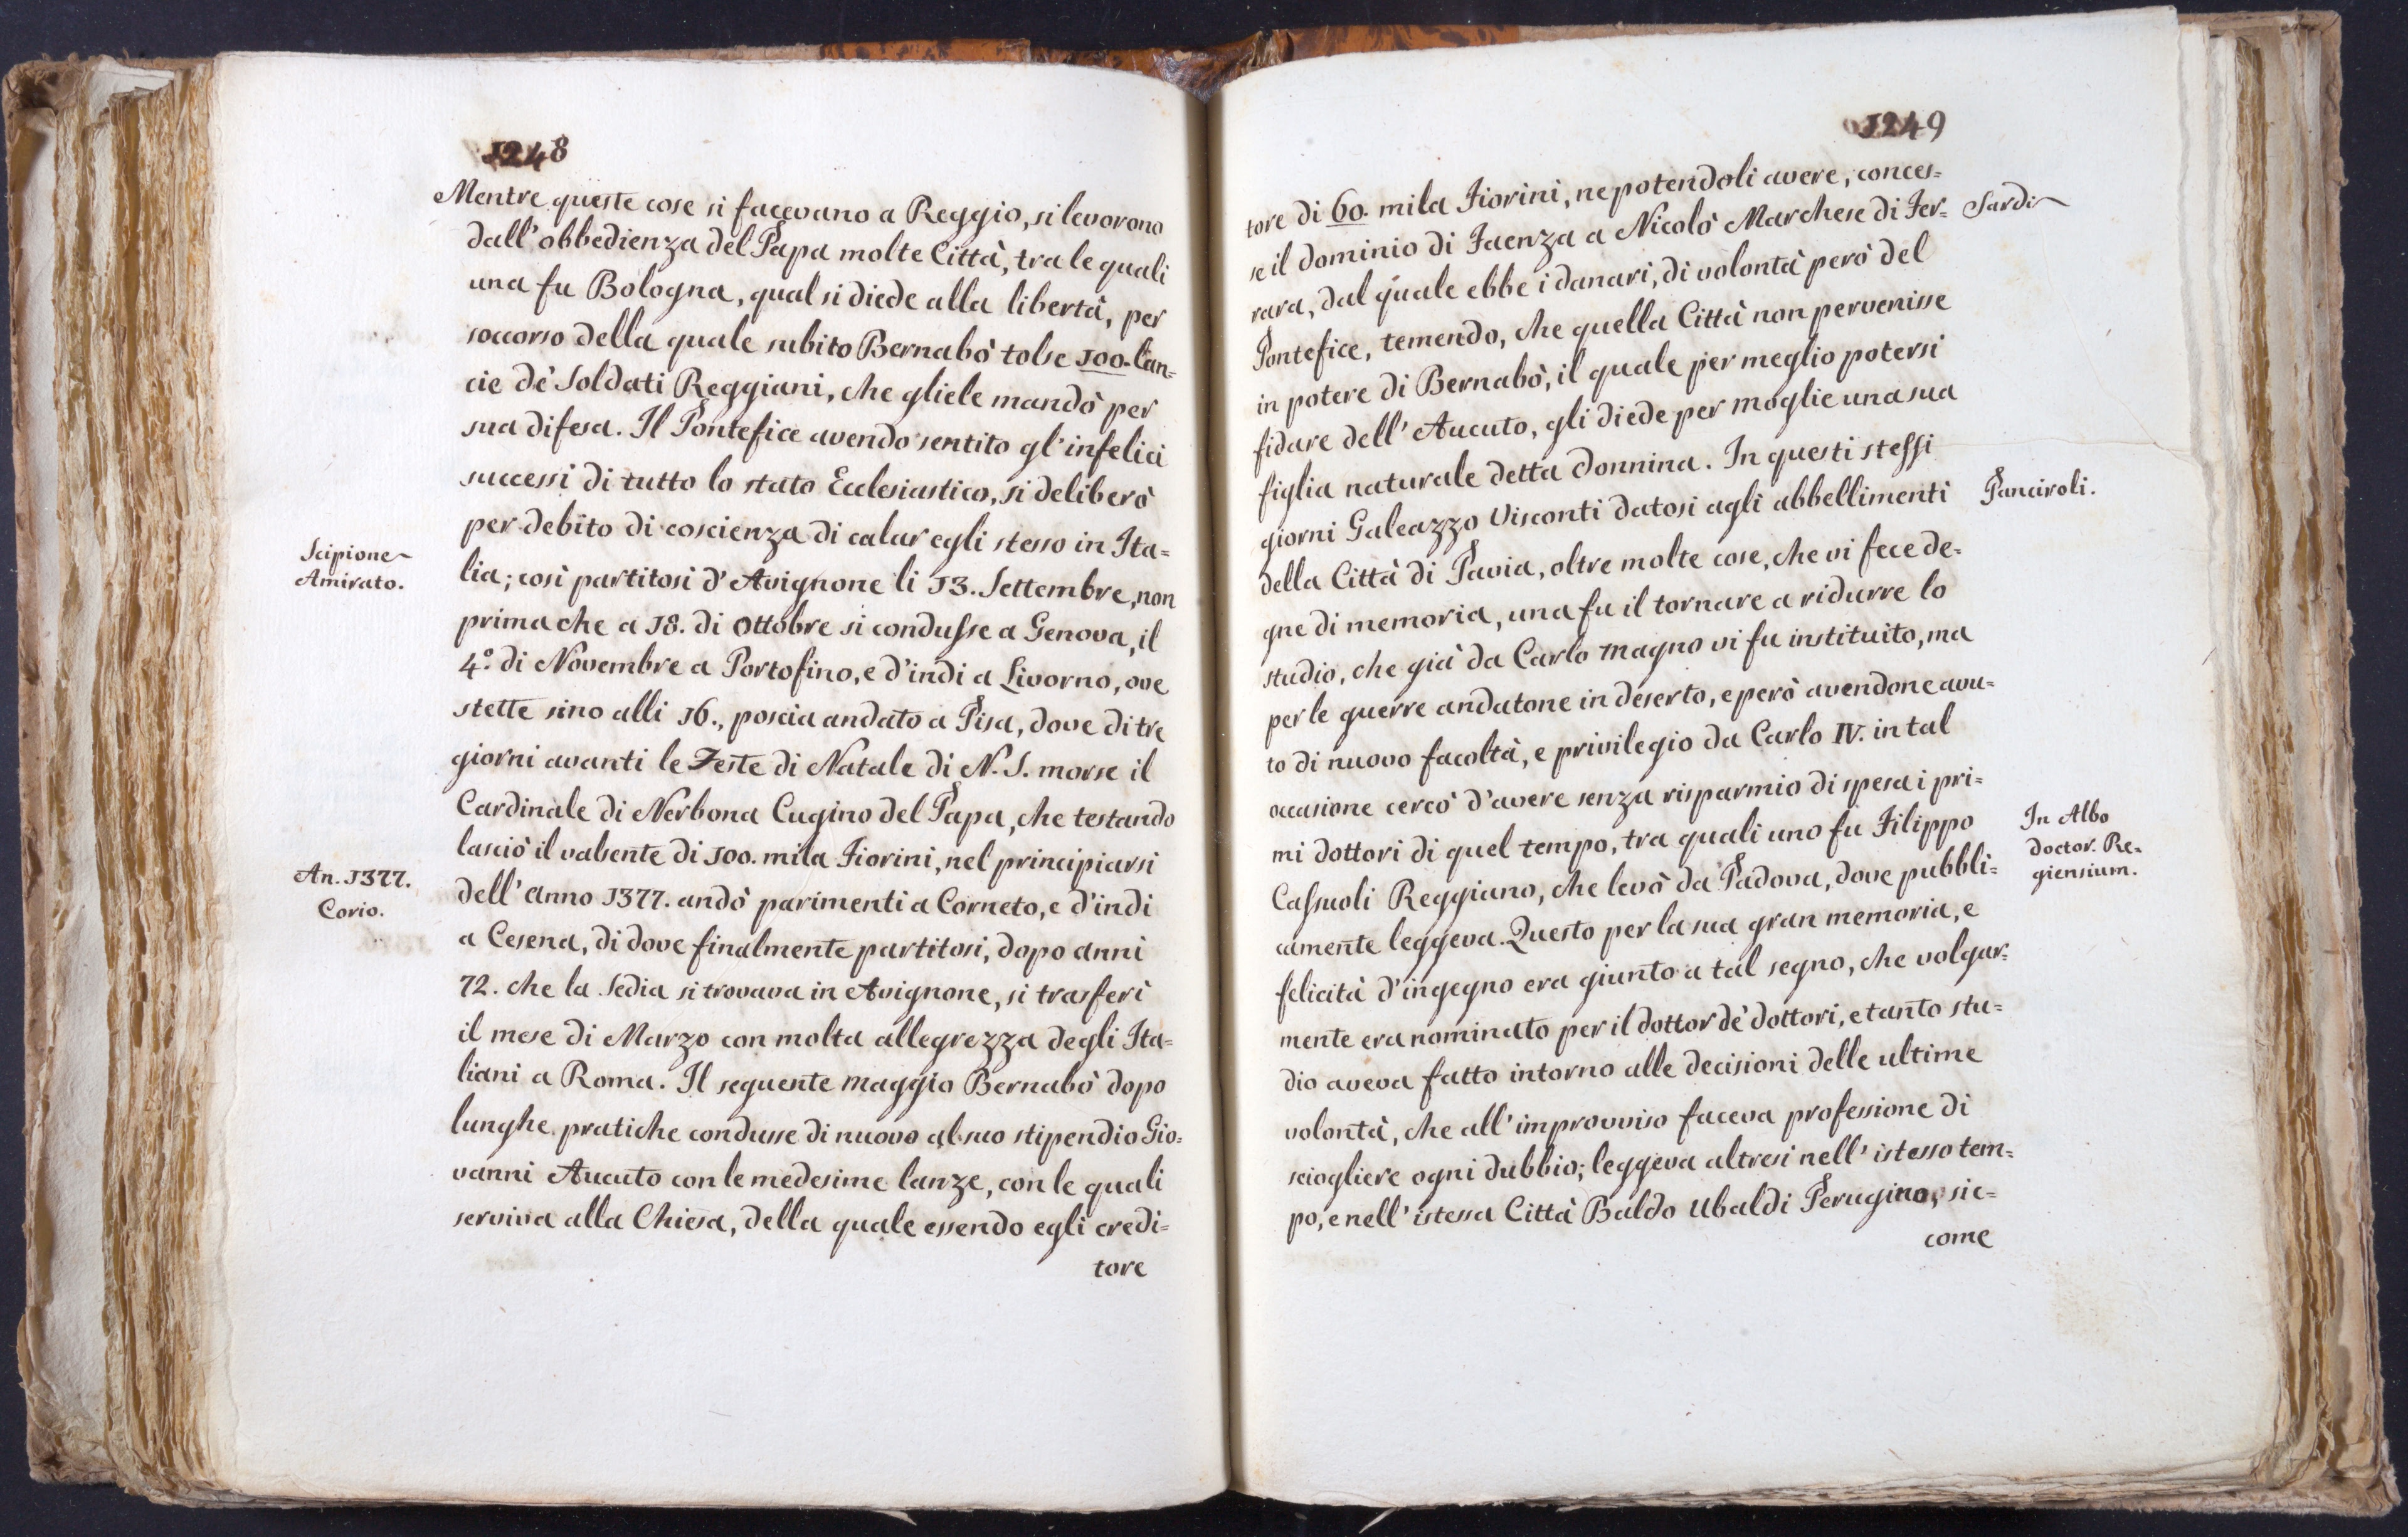 1248
Mentre queste cose si facevano a Reggio, si levorono
dall'obbedienza del Papa molte Città, tra le quali
una fu Bologna, qual si diede alla libertà, per
soccorso della quale subito Bernabò tolse 100. lan=
cie de' Soldati Reggiani, che gliele mandò per
sua difesa. Il Pontefice avendo sentito gl'infelici
successi di tutto lo stato Ecclesiastico, si deliberò
per debito di coscienza di calar egli stesso in Ita=
Scipione
Amirato.
lia; così partitosi d'Avignone li 13. Settembre, non
prima che a 18. di Ottobre si condusse a Genova, il
4.º di Novembre a Portofino, e d'indi a Livorno, ove
stette sino alli 16., poscia andato a Pisa, dove di tre
giorni avanti le Feste di Natale di N. S. morse il
Cardinale di Nerbona Cugino del Papa, che testando
lasciò il valsente di 100. mila Fiorini, nel principiarsi
An. 1377.
Corio.
dell'anno 1377. andò parimenti a Corneto, e d'indi
a Cesena, di dove finalmente partitosi, dopo anni
72. che la Sedia si trovava in Avignone, si trasferì
il mese di Marzo con molta allegrezza degli Ita=
liani a Roma. Il seguente Maggio Bernabò dopo
lunghe pratiche condusse di nuovo al suo stipendio Gio=
vanni Aucuto con le medesime lanze, con le quali
serviva alla Chiesa, della quale essendo egli credi=
tore
1249
tore di 60. mila Fiorini, ne potendoli avere, conces=
se il dominio di Faenza a Nicolò Marchese di Fer=
Sardi
rara, dal quale ebbe i danari, di volontà però del
Pontefice, temendo, che quella Città non pervenisse
in potere di Bernabò, il quale per meglio potersi
fidare dell'Aucuto, gli diede per moglie una sua
figlia naturale detta Donnina. In questi stessi
giorni Galeazzo Visconti datosi agli abbellimenti
Panciroli.
della Città di Pavia, oltre molte cose, che vi fece de=
gne di memoria, una fu il tornare a ridurre lo
studio, che già da Carlo Magno vi fu instituito, ma
per le guerre andatone in deserto, e però avendone avu=
to di nuovo facoltà, e privilegio da Carlo IV. in tal
occasione cercò d'avere senza risparmio di spesa i pri=
mi dottori di quel tempo, tra quali uno fu Filippo
In Albo
doctor. Re=
giensium.
Cassuoli Reggiano, che levò da Padova, dove pubbli=
camente leggeva. Questo per la sua gran memoria, e
felicità d'ingegno era giunto a tal segno, che volgar=
mente era nominato per il dottor de' dottori, e tanto stu=
dio aveva fatto intorno alle decisioni delle ultime
volontà, che all'improvviso faceva professione di
sciogliere ogni dubbio; leggeva altresì nell'istesso tem=
po, e nell'istessa Città Baldo Ubaldi Perugino, sic=
come